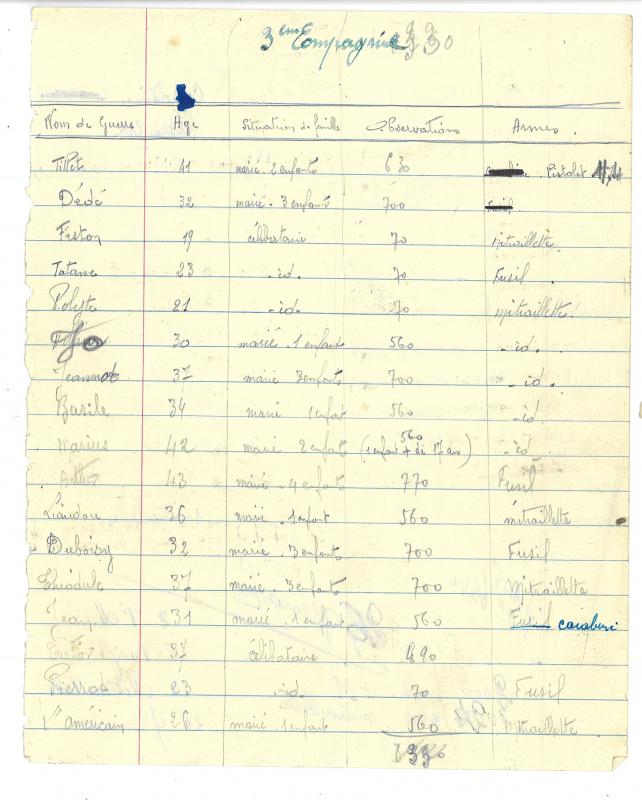 3eme Compagnie
Nom de Guerre Age Situation de famille Observations Armes.
Tillet 41 marié 2 enfants 630 Pistolet
Dédé 32 marié. 3 enfants 700 Fusil
Fiston 19 célibataire 70 mitraillette.
Tatane 23 - id. 70 Fusil.
Polyte 21 - id. 70 Mitraillette.
30 marié. 1 enfant 560 - id.
Jeannot 37 marié 3 enfants 700 - id.
Basile 34 marié 1 enfant 560 - id.
Marius 42 marié 2 enfants 560 (1 enfant + de 17 ans) - id.
43 marié - 4 enfants 770 Fusil
36 marié. 1 enfant 560 mitraillette
Duboisy 32 marié. 3 enfants 700 Fusil
Théodule 37 marié 3 enfants 700 Mitraillette
31 marié. 1 enfant 560 Fusil
37 célibataire
23 - id. 70 Fusil
américain 26 marié. 1 enfant 560 Mitraillette